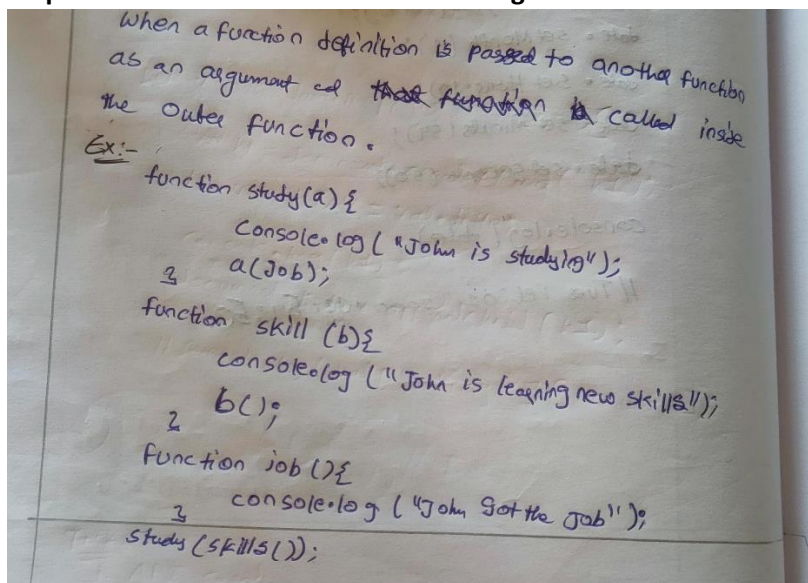 When a function definition is passed to another function
as an argument cd that function is called inside
the outer function.
Ex:-
function study(a) {
console.log ( "John is studying");
a(Job);
}
function skill (b){
console.log ("John is learning new skills");
b();
}
function job (){
console.log ("John Got the Job");
}
study (skills());